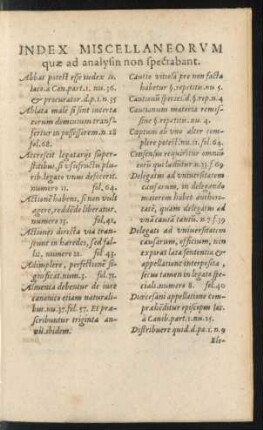 INDEX MISCELLANEORVM
quæ ad analysin non spectabant.
Abbas potest esse iudex in
laco. à Can. part. 1. nu. 36.
& procurator. d. p. 1. n. 35
Ablata malè si sint interta
eorum dominium transfe
fertur in possessorem. n. 28
fol. 68.
Accrescit legatarijs super-
stitibus, si vsufructu plu-
rib. legato vnus decesserit.
numero 11. fol. 64.
Actionē habens, si non vult
agere, reddēdæ liberatur.
numero 15. fol. 45.
Actiones directa via tran-
seunt in hæredes, sed fal-
lit, numero 21. fol. 43.
Adimplere, perfectionē si-
gnificat. num. 3. fol. 51.
Alimenta debentur de iure
canonico etiam naturali-
bus. nu. 37. fol. 57. Et præ-
scribuntur triginta an-
nis. ibidem.
Cautio vitiosa pro non facta
habetur §. repetitio. nu. 5.
Cautionū species. d. §. rep. n. 4
Cautionum materia remis-
siue §. repetitio. nu. 4.
Cautum ab vno alter com
plere potest. n. 30. fo. 69.
Consensus requiritur omniū
vbi qui laeditur. n. 33. f. 69
Delegatus ad vniuersitatem
causarum, in deleganda
maiorem habet authori-
tatē, quàm delegatus ad
vnā causā tantū. n. 7. f. 39
Delegati ad vniuersitatem
causarum, officium, non
expirat lata sententia &
appellatione interposita,
secus tamen in legato spe-
ciali. numero 8. fol. 40
Diœcesani appellatione com-
præhēditur episcopus la-
à Canib. part. 1. nu. 15.
Distribuere quid. d. pa. 1. n. 9
Ele-